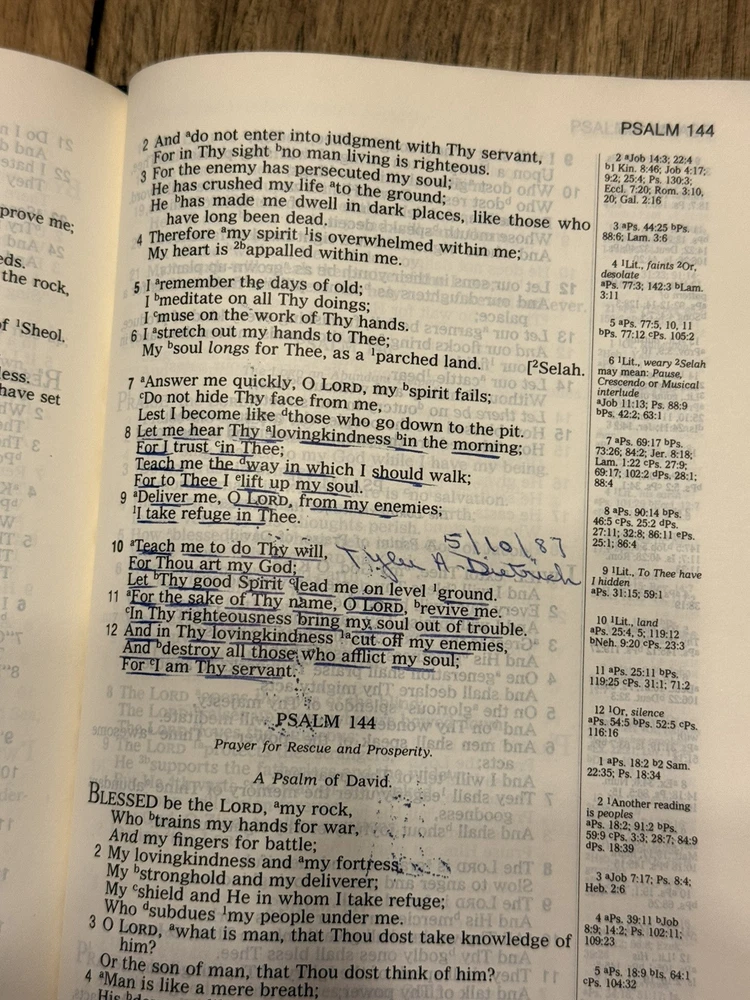 prove me;
eds.
the rock,
of ¹Sheol.
less.
have set
PSALM 144
2 And ᵃdo not enter into judgment with Thy servant,
For in Thy sight ᵇno man living is righteous.
3 For the enemy has persecuted my soul;
He has crushed my life ᵃto the ground;
He ᵇhas made me dwell in dark places, like those who
have long been dead.
4 Therefore ᵃmy spirit ¹is overwhelmed within me;
My heart is ²ᵇappalled within me.
5 I ᵃremember the days of old;
I ᵇmeditate on all Thy doings;
I ᶜmuse on the work of Thy hands.
6 I ᵃstretch out my hands to Thee;
My ᵇsoul longs for Thee, as a ¹parched land. [²Selah.
7 ᵃAnswer me quickly, O LORD, my ᵇspirit fails;
ᶜDo not hide Thy face from me,
Lest I become like ᵈthose who go down to the pit.
8 Let me hear Thy ᵃlovingkindness ᵇin the morning;
For I trust ᶜin Thee;
Teach me the ᵈway in which I should walk;
For to Thee I ᵉlift up my soul.
9 ᵃDeliver me, O LORD, from my enemies;
¹I take refuge in Thee.
5/10/87
10 ᵃTeach me to do Thy will, Tyler A. Dietrich
For Thou art my God;
Let ᵇThy good Spirit ᶜlead me on level ¹ground.
11 ᵃFor the sake of Thy name, O LORD, ᵇrevive me.
ᶜIn Thy righteousness bring my soul out of trouble.
12 And in Thy lovingkindness ¹ᵃcut off my enemies,
And ᵇdestroy all those who afflict my soul;
For ᶜI am Thy servant.
PSALM 144
Prayer for Rescue and Prosperity.
A Psalm of David.
BLESSED be the LORD, ᵃmy rock,
Who ᵇtrains my hands for war,
And my fingers for battle;
2 My lovingkindness and ᵃmy fortress,
My ᵇstronghold and my deliverer;
My ᶜshield and He in whom I take refuge;
Who ᵈsubdues ¹my people under me.
3 O LORD, ᵃwhat is man, that Thou dost take knowledge of
him?
Or the son of man, that Thou dost think of him?
4 ᵃMan is like a mere breath;
His
2 ᵃJob 14:3; 22:4
ᵇ1 Kin. 8:46; Job 4:17;
9:2; 25:4; Ps. 130:3;
Eccl. 7:20; Rom. 3:10,
20; Gal. 2:16
3 ᵃPs. 44:25 ᵇPs.
88:6; Lam. 3:6
4 ¹Lit., faints ²Or,
desolate
ᵃPs. 77:3; 142:3 ᵇLam.
3:11
5 ᵃPs. 77:5, 10, 11
ᵇPs. 77:12 ᶜPs. 105:2
6 ¹Lit., weary ²Selah
may mean: Pause,
Crescendo or Musical
interlude
ᵃJob 11:13; Ps. 88:9
ᵇPs. 42:2; 63:1
7 ᵃPs. 69:17 ᵇPs.
73:26; 84:2; Jer. 8:18;
Lam. 1:22 ᶜPs. 27:9;
69:17; 102:2 ᵈPs. 28:1;
88:4
8 ᵃPs. 90:14 ᵇPs.
46:5 ᶜPs. 25:2 ᵈPs.
27:11; 32:8; 86:11 ᵉPs.
25:1; 86:4
9 ¹Lit., To Thee have
I hidden
ᵃPs. 31:15; 59:1
10 ¹Lit., land
ᵃPs. 25:4, 5; 119:12
ᵇNeh. 9:20 ᶜPs. 23:3
11 ᵃPs. 25:11 ᵇPs.
119:25 ᶜPs. 31:1; 71:2
12 ¹Or, silence
ᵃPs. 54:5 ᵇPs. 52:5 ᶜPs.
116:16
1 ᵃPs. 18:2 ᵇ2 Sam.
22:35; Ps. 18:34
2 ¹Another reading
is peoples
ᵃPs. 18:2; 91:2 ᵇPs.
59:9 ᶜPs. 3:3; 28:7; 84:9
ᵈPs. 18:39
3 ᵃJob 7:17; Ps. 8:4;
Heb. 2:6
4 ᵃPs. 39:11 ᵇJob
8:9; 14:2; Ps. 102:11;
109:23
5 ᵃPs. 18:9 ᵇIs. 64:1
ᶜPs. 104:32